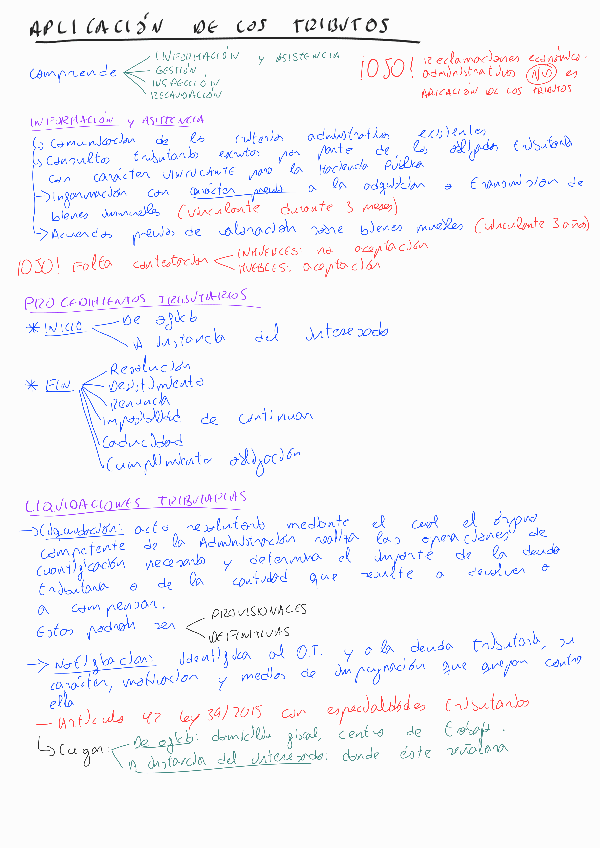 APLICACIÓN DE LOS TRIBUTOS
Comprende
INFORMACIÓN y ASISTENCIA
GESTIÓN
INSPECCIÓN
RECAUDACIÓN
¡OJO! Reclamaciones económico-
administrativas NO es
APLICACIÓN DE LOS TRIBUTOS
INFORMACIÓN y ASISTENCIA
Comunicación de los criterios administrativos existentes
Consultas tributarias escritas por parte de los obligados tributarios
con carácter VINCULANTE para la Hacienda Pública
Información con carácter previo a la adquisición o transmisión de
bienes inmuebles (vinculante durante 3 meses)
Acuerdos previos de valoración sobre bienes muebles (vinculante 3 años)
¡OJO! Falta contestación
INMUEBLES: no aceptación
MUEBLES: aceptación
PROCEDIMIENTOS TRIBUTARIOS
* INICIO
De oficio
A instancia del interesado
* FIN
Resolución
Desistimiento
Renuncia
Imposibilidad de continuar
Caducidad
Cumplimiento obligación
LIQUIDACIONES TRIBUTARIAS
→ Liquidación: acto resolutorio mediante el cual el órgano
competente de la Administración realiza las operaciones de
cuantificación necesarias y determina el importe de la deuda
tributaria o de la cantidad que resulte a devolver o
a compensar.
Estas podrán ser
PROVISIONALES
DEFINITIVAS
→ Notificación: identifica al O.T. y a la deuda tributaria, su
carácter, motivación y medios de impugnación que quepan contra
ella
- Artículo 42 Ley 39/2015 con especialidades tributarias
Lugar:
De oficio: domicilio fiscal, centro de trabajo.
A instancia del interesado: donde éste señalara